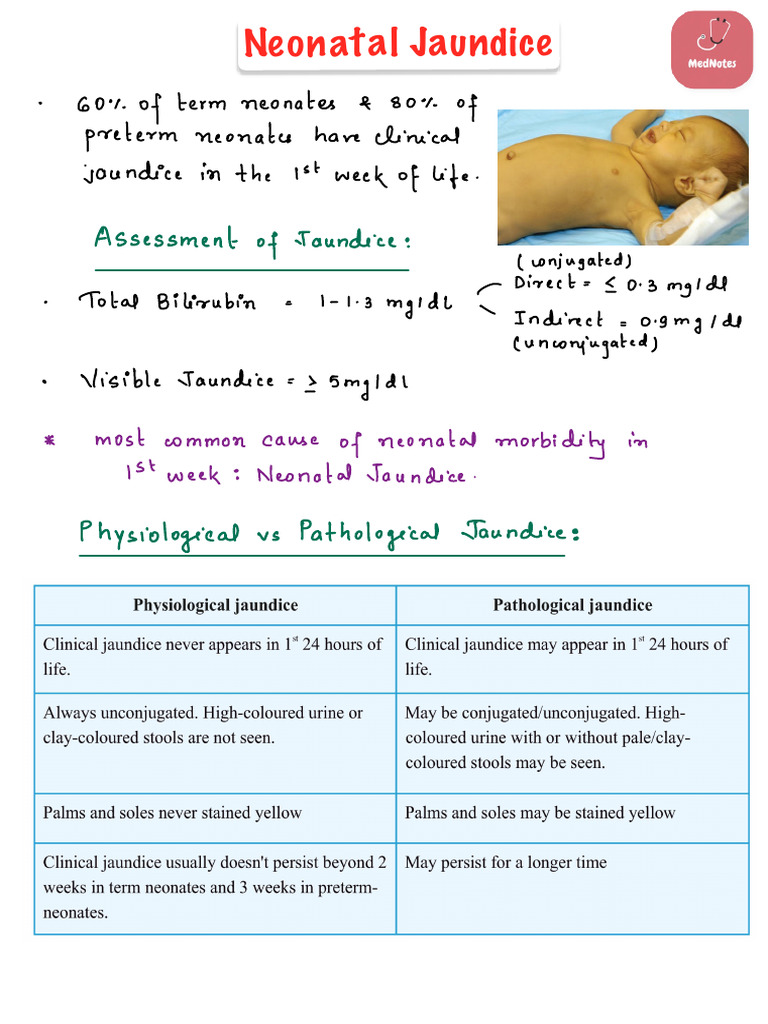 Neonatal Jaundice
MedNotes
• 60% of term neonates & 80% of
preterm neonates have clinical
jaundice in the 1st week of life.
Assessment of Jaundice:
• Total Bilirubin = 1-1.3 mg/dl
(conjugated)
Direct = ≤ 0.3 mg/dl
Indirect = 0.9 mg/dl
(unconjugated)
• Visible Jaundice = ≥ 5mg/dl
* most common cause of neonatal morbidity in
1st week : Neonatal Jaundice.
Physiological vs Pathological Jaundice:
Physiological jaundice
Pathological jaundice
Clinical jaundice never appears in 1st 24 hours of
life.
Clinical jaundice may appear in 1st 24 hours of
life.
Always unconjugated. High-coloured urine or
clay-coloured stools are not seen.
May be conjugated/unconjugated. High-
coloured urine with or without pale/clay-
coloured stools may be seen.
Palms and soles never stained yellow
Palms and soles may be stained yellow
Clinical jaundice usually doesn't persist beyond 2
weeks in term neonates and 3 weeks in preterm-
neonates.
May persist for a longer time